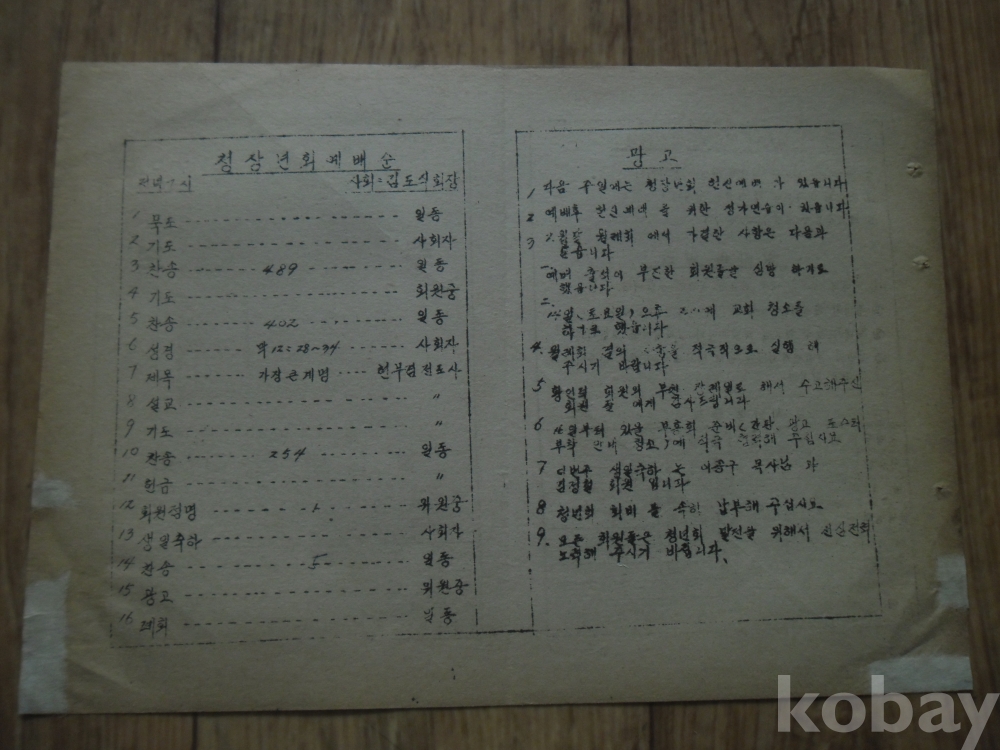 청장년회예배순
사회=김도식회장
1 묵도 일동
2 기도 사회자
3 찬송 489 일동
4 기도 회원중
5 찬송 402 일동
6 성경 막12=28~34 사회자
7 제목 가장큰계명 전도사
8 설교 〃
9 기도 〃
10 찬송 254 일동
11 헌금 〃
12 회원점명 회원중
13 생일축하 사회자
14 찬송 5 일동
15 광고 회원중
16 폐회 일동
광고
1 다음 주일에는 청장년회 헌신예배 가 있습니다
2 예배후 헌신예배 을 위한 성가연습이 있습니다
3 월례회 에서 가결한 사항은 다음과
같습니다
예배 출석이 부진한 회원들은 심방 하기로
했습니다
토요일 오후 교회 청소를
하기로 했습니다
4. 월례회 결의 적극적으로 실행 해
주시기 바랍니다
5 회원의 해서 수고해주신
회원 들 에게 감사드립니다
6 있을 부흥회 준비
부착 안내 청소 해 주십시요
7 이번주 생일축하 는 목사님 과
김정철 회원 입니다
8 청년회 회비 를 속히 납부해 주십시요
9. 모든 회원들은 청년회 발전을 위해서
노력해 주시기 바랍니다.
kobay